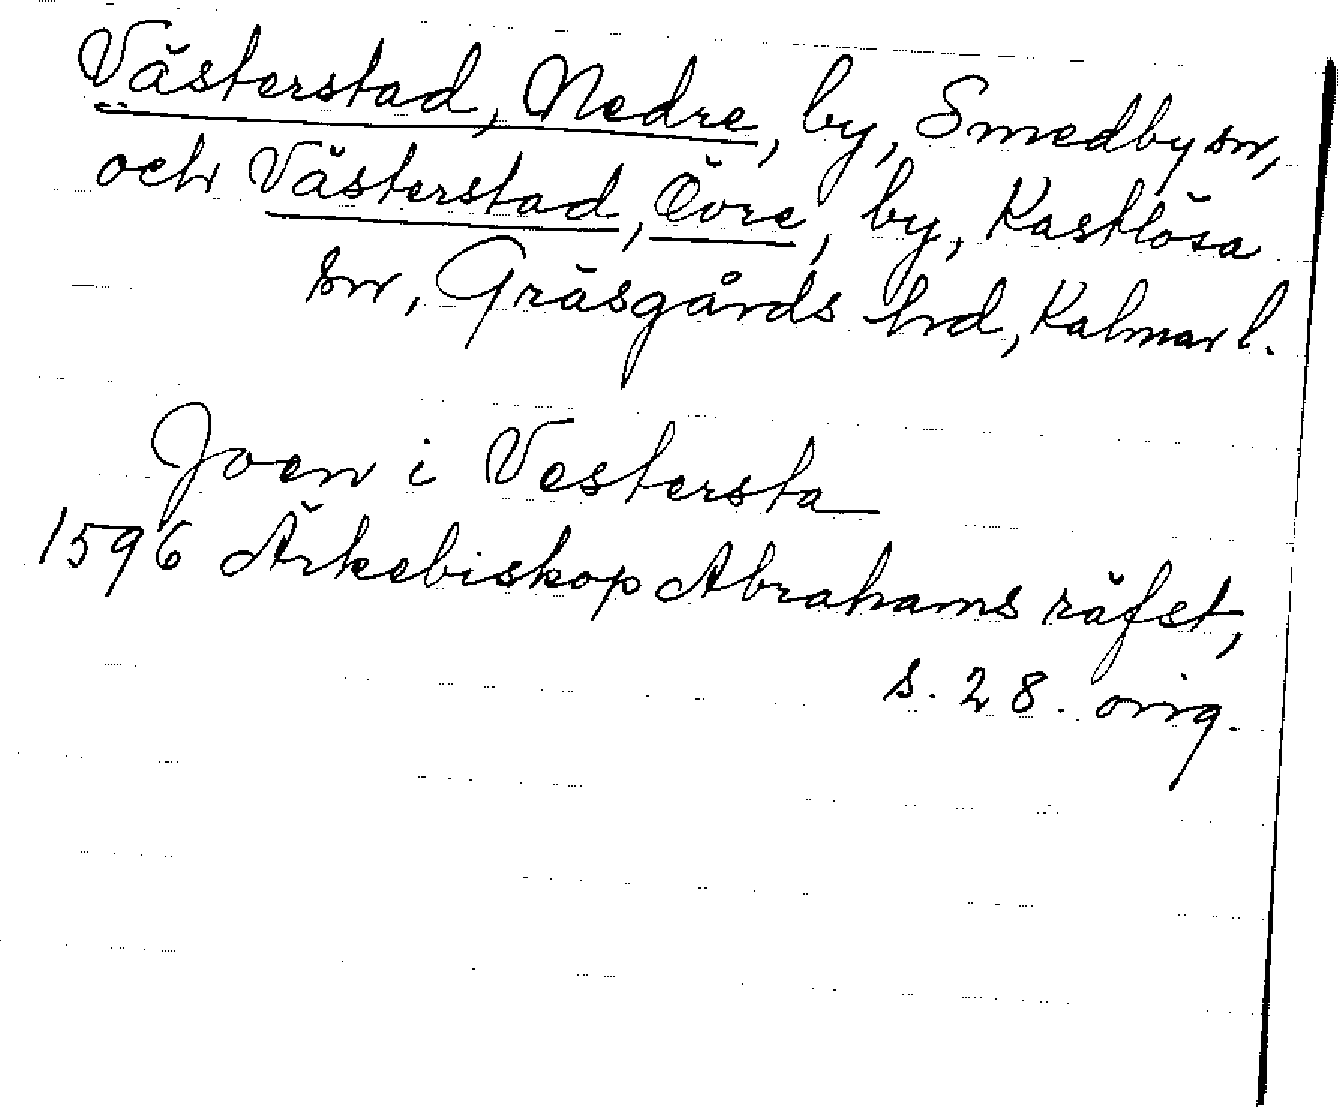 Västerstad, Nedre, by, Smedby sn,
och Västerstad, Övre, by, Kastlösa
sn, Gräsgårds hd, Kalmar l.
Joen i Vestersta
1596 Ärkebiskop Abrahams räfst,
s. 28. orig.